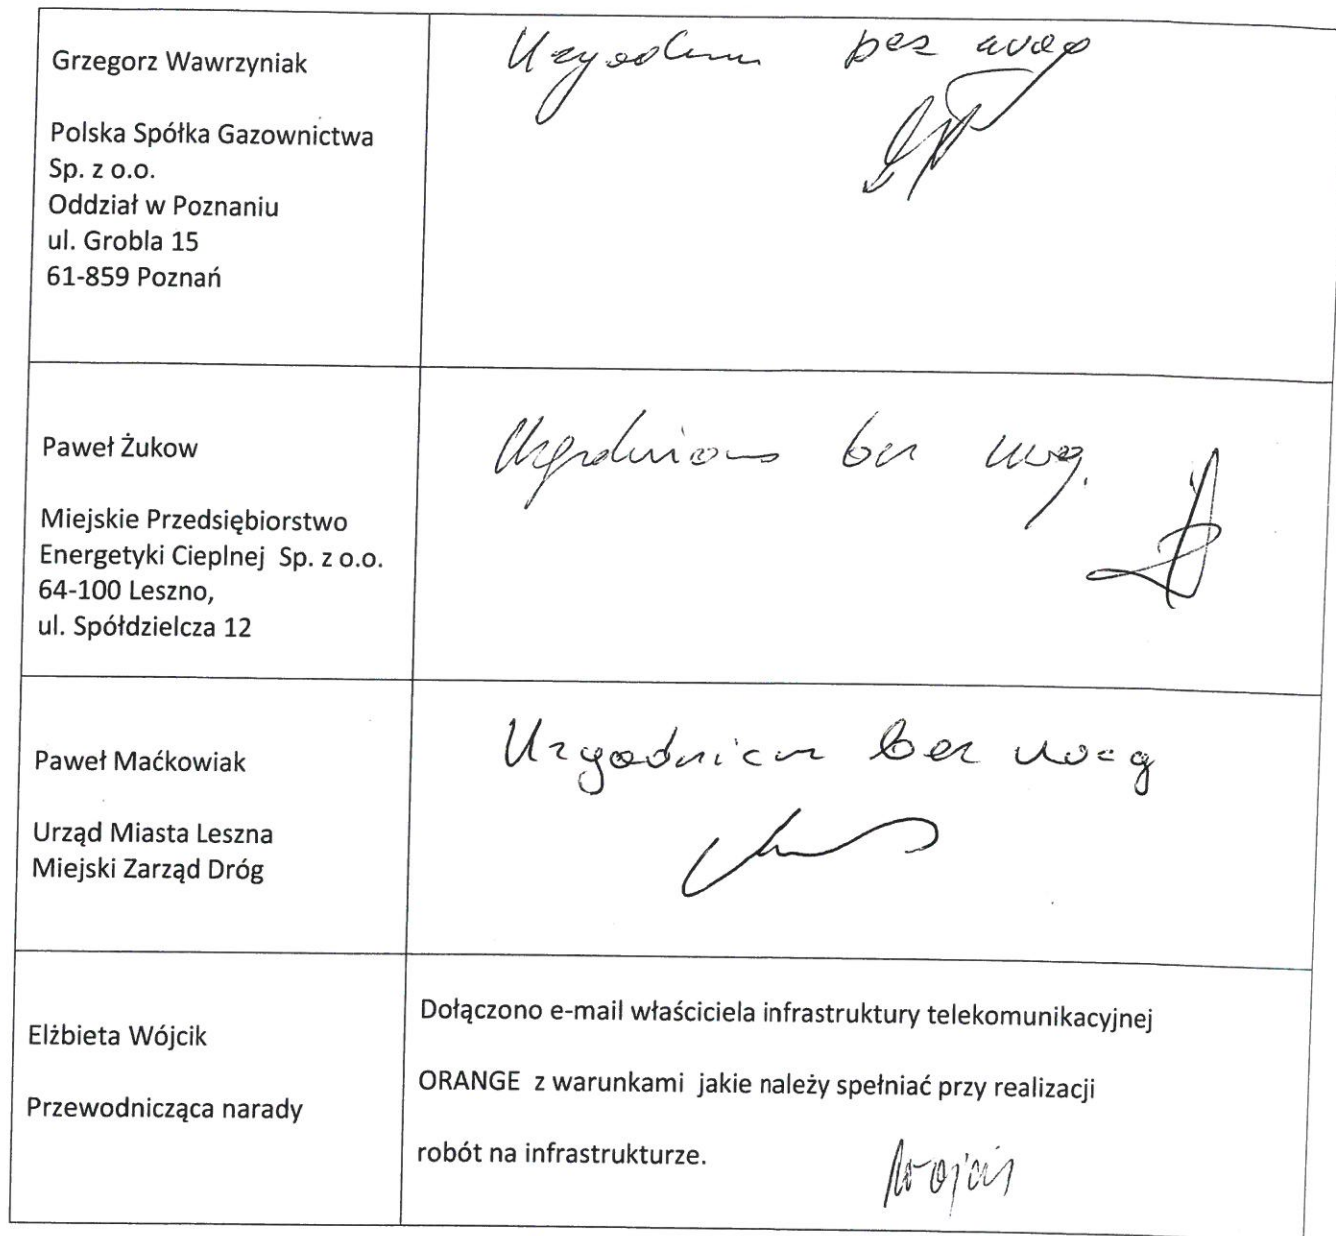 Grzegorz Wawrzyniak
Uzgodniono bez uwag
Polska Spółka Gazownictwa
Sp. z o.o.
Oddział w Poznaniu
ul. Grobla 15
61-859 Poznań
Paweł Żukow
Uzgodniono bez uwag.
Miejskie Przedsiębiorstwo
Energetyki Cieplnej Sp. z o.o.
64-100 Leszno,
ul. Spółdzielcza 12
Paweł Maćkowiak
Uzgodniono bez uwag
Urząd Miasta Leszna
Miejski Zarząd Dróg
Elżbieta Wójcik
Przewodnicząca narady
Dołączono e-mail właściciela infrastruktury telekomunikacyjnej
ORANGE z warunkami jakie należy spełniać przy realizacji
robót na infrastrukturze.
Wójcik